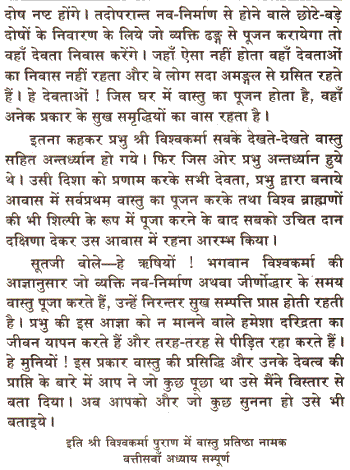 दोष नष्ट होंगे। तदोपरान्त नव-निर्माण से होने वाले छोटे-बड़े
दोषों के निवारण के लिये जो व्यक्ति ढङ्ग से पूजन करायेगा तो
वहाँ देवता निवास करेंगे। जहाँ ऐसा नहीं होता वहाँ देवताओं
का निवास नहीं रहता और वे लोग सदा अमङ्गल से ग्रसित रहते
हैं। हे देवताओं ! जिस घर में वास्तु का पूजन होता है, वहाँ
अनेक प्रकार के सुख समृद्धियों का वास रहता है।
इतना कहकर प्रभु श्री विश्वकर्मा सबके देखते-देखते वास्तु
सहित अन्तर्ध्यान हो गये। फिर जिस ओर प्रभु अन्तर्ध्यान हुये
थे। उसी दिशा को प्रणाम करके सभी देवता, प्रभु द्वारा बनाये
आवास में सर्वप्रथम वास्तु का पूजन करके तथा विश्व ब्राह्मणों
की भी शिल्पी के रूप में पूजा करने के बाद सबको उचित दान
दक्षिणा देकर उस आवास में रहना आरम्भ किया।
सूतजी बोले—हे ऋषियों ! भगवान विश्वकर्मा की
आज्ञानुसार जो व्यक्ति नव-निर्माण अथवा जीर्णोद्धार के समय
वास्तु पूजा करते हैं, उन्हें निरन्तर सुख सम्पत्ति प्राप्त होती रहती
है। प्रभु की इस आज्ञा को न मानने वाले हमेशा दरिद्रता का
जीवन यापन करते हैं और तरह-तरह से पीड़ित रहा करते हैं।
हे मुनियों ! इस प्रकार वास्तु की प्रसिद्धि और उनके देवत्व की
प्राप्ति के बारे में आप ने जो कुछ पूछा था उसे मैंने विस्तार से
बता दिया। अब आपको और जो कुछ सुनना हो उसे भी
बताइये।
इति श्री विश्वकर्मा पुराण में वास्तु प्रतिष्ठा नामक
वत्तीसवाँ अध्याय सम्पूर्ण